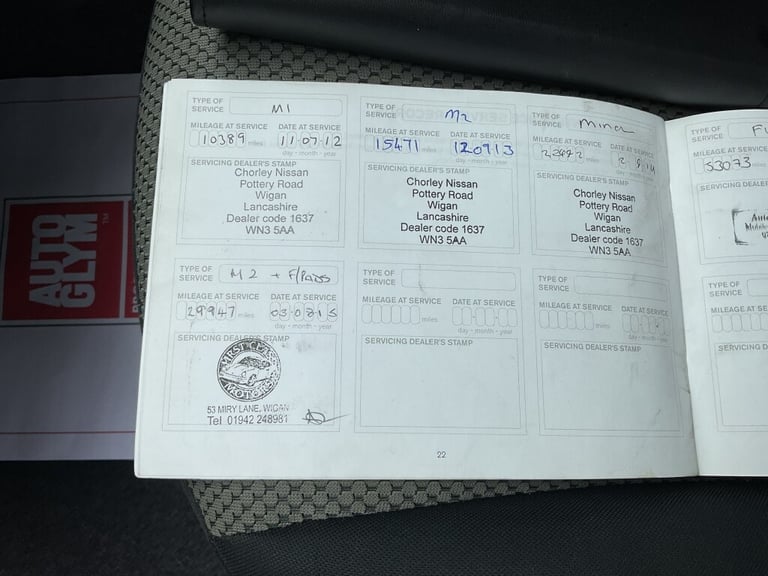 AUTO
GLYM™
TYPE OF
SERVICE M1
MILEAGE AT SERVICE DATE AT SERVICE
10389 miles 11 07 12
day - month - year
SERVICING DEALER'S STAMP
Chorley Nissan
Pottery Road
Wigan
Lancashire
Dealer code 1637
WN3 5AA
TYPE OF
SERVICE M2
MILEAGE AT SERVICE DATE AT SERVICE
15471 miles 120913
day - month - year
SERVICING DEALER'S STAMP
Chorley Nissan
Pottery Road
Wigan
Lancashire
Dealer code 1637
WN3 5AA
TYPE OF
SERVICE Minor
MILEAGE AT SERVICE DATE AT SERVICE
miles
SERVICING DEALER'S STAMP
Chorley Nissan
Pottery Road
Wigan
Lancashire
Dealer code 1637
WN3 5AA
TYPE OF
SERVICE M2 + F/PADS
MILEAGE AT SERVICE DATE AT SERVICE
29947 miles 03 08 15
day - month - year
SERVICING DEALER'S STAMP
MOTORS
53 MIRY LANE, WIGAN
Tel 01942 248981
TYPE OF
SERVICE
MILEAGE AT SERVICE DATE AT SERVICE
miles
day - month - year
SERVICING DEALER'S STAMP
TYPE OF
SERVICE
MILEAGE AT SERVICE DATE AT SERVICE
miles
day - month - year
SERVICING DEALER'S STAMP
22
TYPE OF
SERVICE
MILEAGE AT SERVICE
53073 miles
SERVICING DEALER
TYPE OF
SERVICE
MILEAGE AT SER
SERVICING D